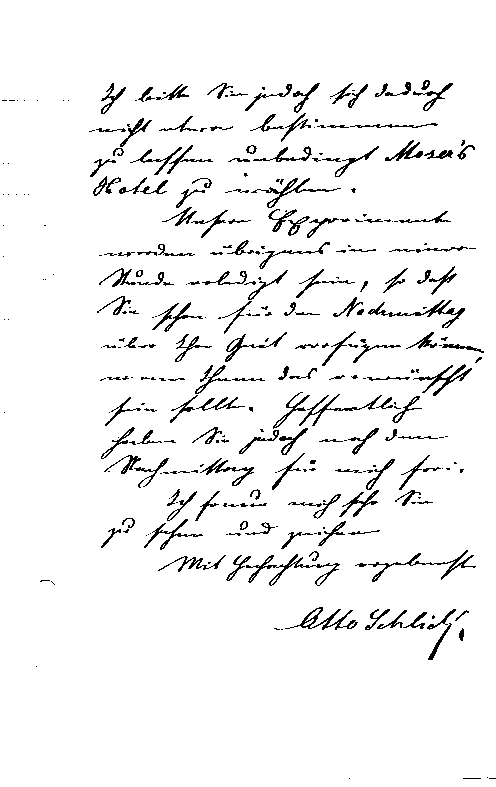 Ich bitte Sie jedoch sich dadurch
nicht etwa bestimmen
zu lassen unbedingt Moser's
Hotel zu wählen.
Unsere Experimente
werden übrigens in einer
Stunde erledigt sein, so daß
Sie schon für den Nachmittag
über Ihre Zeit verfügen können,
wenn Ihnen das erwünscht
sein sollte. Hoffentlich
haben Sie jedoch noch den
Nachmittag für mich frei.
Ich freue mich sehr Sie
zu sehen und zeichne
Mit Hochachtung ergebenst
Otto Schlick.